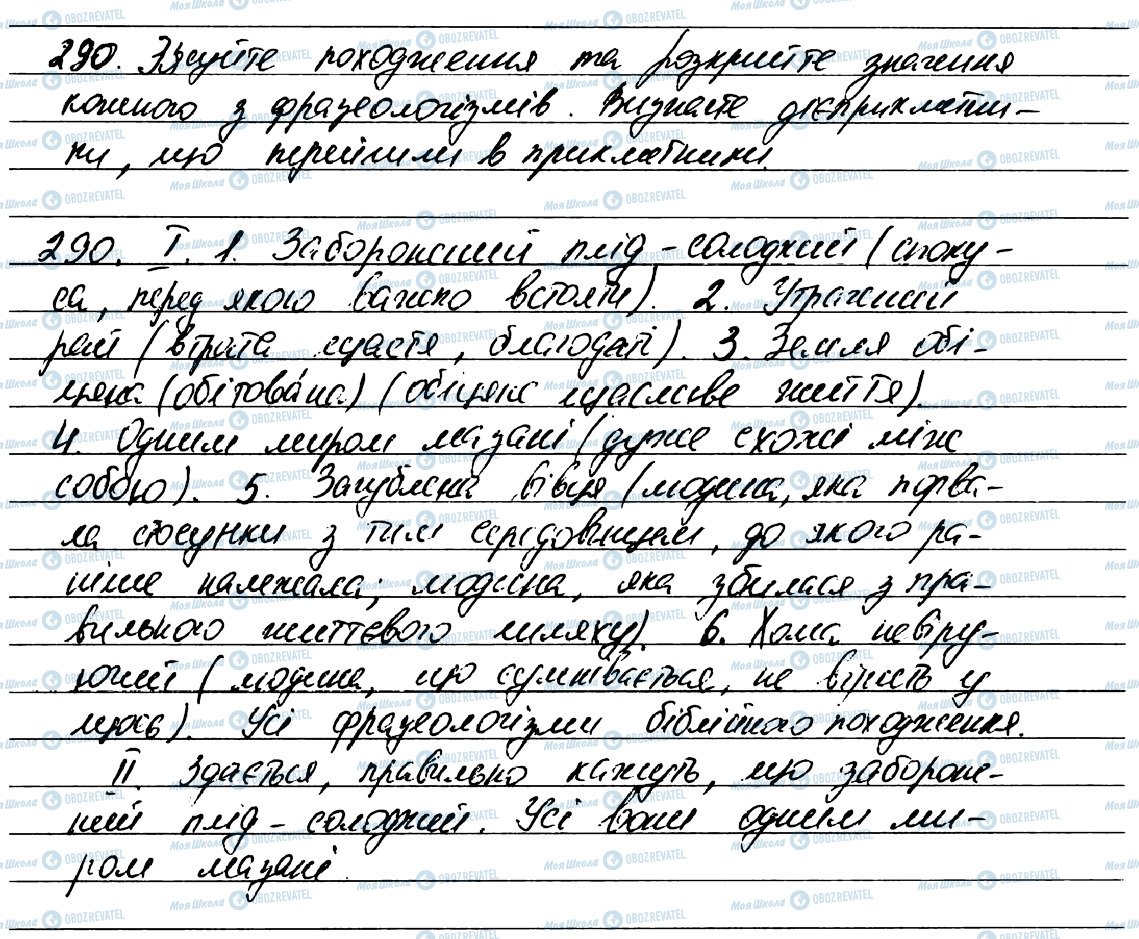 290. З'ясуйте походження та розкрийте значення
кожного з фразеологізмів. Визначте дієприкметни-
ки, що перейшли в прикметники.
290. I. 1. Заборонений плід – солодкий (споку-
са, перед якою важко встояти). 2. Утрачений
рай (втрата щастя, благодаті). 3. Земля обі-
цяна (обітова́на) (обіцяне щасливе життя).
4. Одним миром мазані (дуже схожі між
собою). 5. Загублена вівця (людина, яка порва-
ла стосунки з тим середовищем, до якого ра-
ніше належала; людина, яка збилася з пра-
вильного життєвого шляху). 6. Хома невіру-
ючий (людина, що сумнівається, не вірить у
щось). Усі фразеологізми біблійного походження.
II. Здається, правильно кажуть, що забороне-
ний плід – солодкий. Усі вони одним ми-
ром мазані.
МояШкола OBOZREVATEL